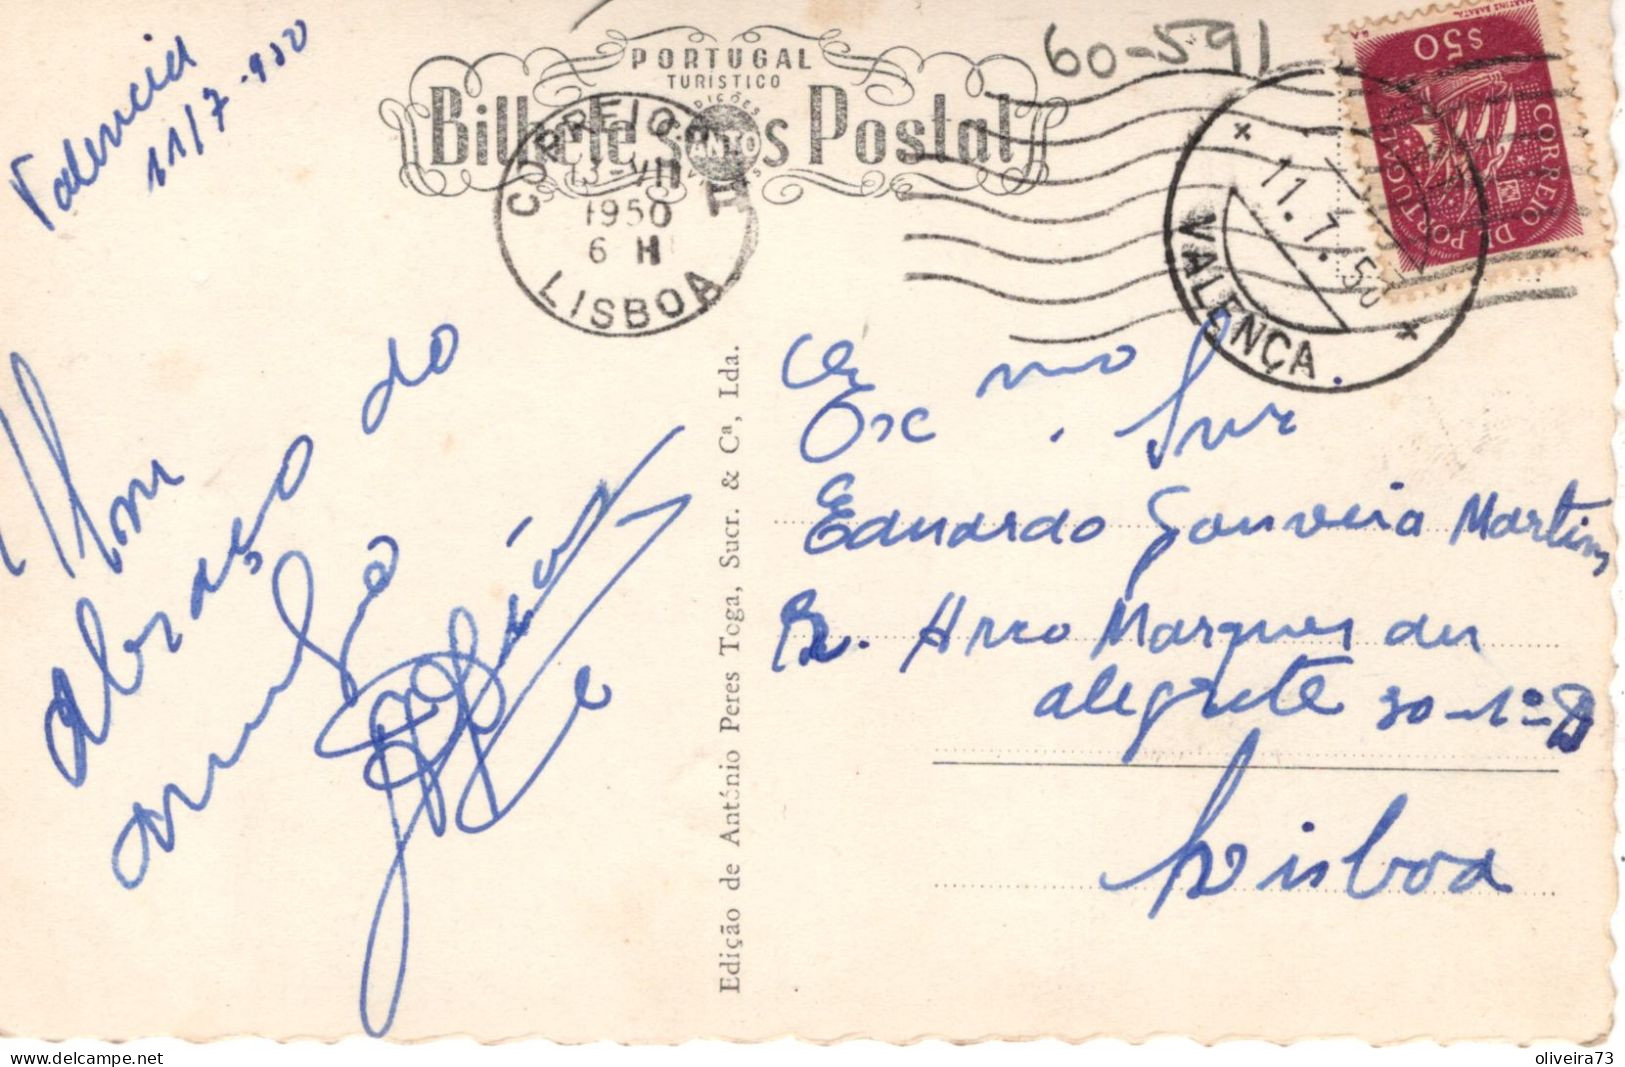 Valencia
11/7-950
60-591
PORTUGAL
TURÍSTICO
EDIÇÕES
Bilhete Postal
CORREIOS
13-VII
1950
6 H
LISBOA
11.7.50
VALENÇA
$50
CORREIO DE PORTUGAL
Um
abraço do
amigo
Exmo Snr
Eduardo Gouveia Martins
R. Arco Marques de
Alegrete 30-1º-D
Lisboa
Edição de António Peres Toga, Sucr. & Cª, Lda.
oliveira73